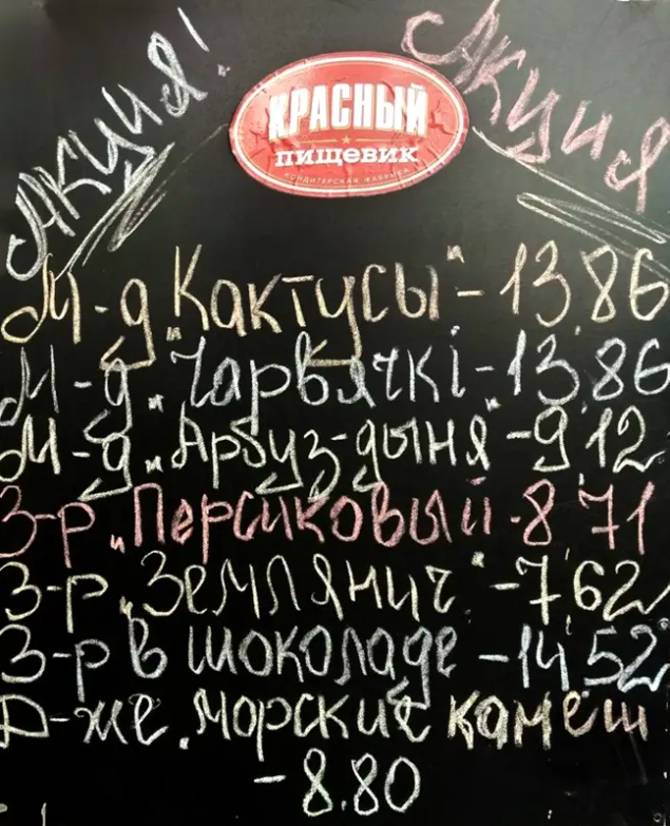 Акция!
Акция
КРАСНЫЙ
ПИЩЕВИК
КОНДИТЕРСКАЯ ФАБРИКА
М-д "Кактусы" - 13,86
М-д "Чарвячкі - 13,86
М-д "Арбуз-дыня" - 9,12
З-р "Персиковый - 8,71
З-р "Землянич" - 7,62
З-р в шоколаде - 14,52
Д-же "морские камеш
- 8.80